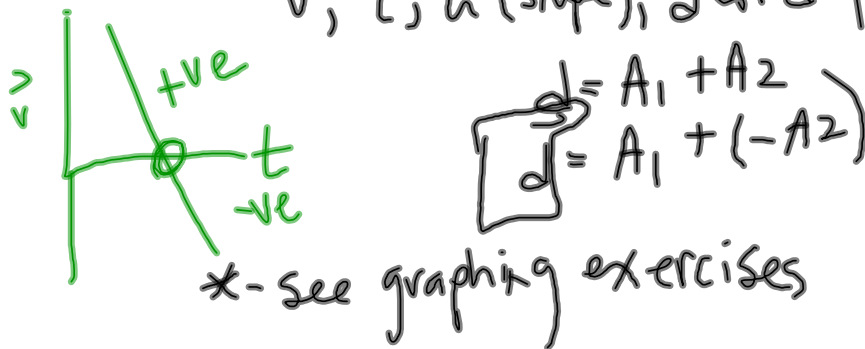 v, t, a (slope),
v
+ve
t
-ve
d = A1 + A2
d = A1 + (-A2)
*- see graphing exercises